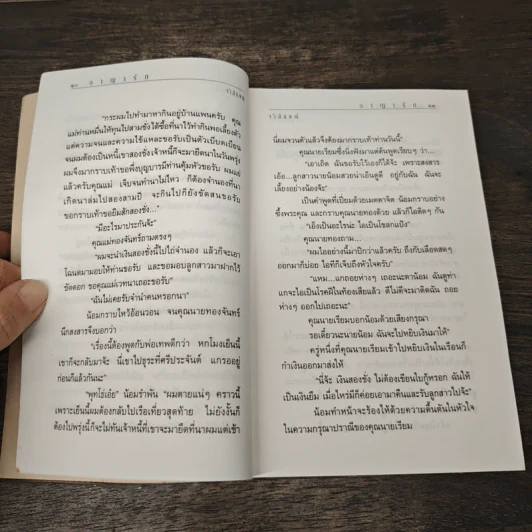 ๑๐ อาญารัก
"กระผมไปทำมาหากินอยู่บ้านแพนครับ คุณ
แม่ท่านหมั่นให้ทุนไปสามชั่งได้ซื้อที่นาไว้ทำกินพอเลี้ยงตัว
แต่ความจนและความใช้แหละขอรับเป็นตัวเบียดเบียน
จนผมต้องเป็นหนี้เขาสองชั่งเจ้าหนี้ก็จะมายึดนาในวันพรุ่ง
ผมจึงมากราบเท้าขอพึ่งบุญบารมีท่านคุ้มหัวขอรับ ผมแย่
แล้วครับคุณแม่ เจ็บจนทำนาไม่ไหว ก็ต้องจำนองที่นา
เกิดนาล่มไปสองสามปี จะกินไปก็ยังขัดสนขอรับ
ขอกราบเท้าขอยืมสักสองชั่ง..."
"มีอะไรมาประกันจ้ะ"
คุณแม่ทองจันทร์ถามตรงๆ
"ผมจะนำเงินสองชั่งนี้ไปไถ่จำนอง แล้วก็จะเอา
โฉนดมามอบให้ท่านขอรับ และขอมอบลูกสาวมาฝากไว้
ขัดดอก ขอคุณแม่เวทนาเถอะขอรับ"
"ฉันไม่เคยรับจำนำคนหรอกนา"
น้อมกราบไหว้อ้อนวอน จนคุณนายทองจันทร์
นึกสงสารจึงบอกว่า
"เรื่องนี้ต้องพูดกับพ่อเทพดีกว่า หกโมงเย็นนี้
เขาก็จะกลับมาจ้ะ นี่เขาไปธุระที่ศรีประจันต์ แกรออยู่
ก่อนก็แล้วกันนะ"
"พุทโธ่เอ๋ย" น้อมรำพัน "ผมตายแน่ๆ คราวนี้
เพราะเย็นนี้ผมต้องกลับไปเรือเที่ยวสุดท้าย ไม่ยังงั้นก็
ต้องไปพรุ่งนี้ก็จะไม่ทันเจ้าหนี้ที่เขาจะมายึดที่นาผมแต่เช้า
อาญารัก ๑๑
นี่ผมจวนตัวแล้วจึงต้องมากราบเท้าท่านวันนี้"
คุณนายเรียมซึ่งนิ่งฟังมาแต่ต้นพูดเรียบๆ ว่า...
"เอาเถิด ฉันขอรับไว้เองก็ได้จ้ะ เพราะสงสาร
เอ้อ...ลูกสาวนายน้อมสวยน่าเอ็นดูดี อยู่กับฉัน ฉันจะ
เลี้ยงอย่างน้องจ้ะ"
เป็นคำพูดที่เปี่ยมด้วยเมตตาจิต น้อมกราบอย่าง
ซึ้งพระคุณ และกราบคุณนายทองด้วย แล้วก็ไอติดๆ กัน
"เอ็งเป็นอะไรน่ะ ไอเป็นโขลกแป้ง"
คุณนายทองถาม...
"ผมไออย่างนี้มาปีกว่าแล้วครับ ถึงกับเลือดสดๆ
ออกมาก็บ่อย ไอทีก็เจ็บถึงหัวใจครับ"
"แหม...แกถอยห่างๆ เถอะนะตาน้อม ฉันดูท่า
แกจะไอเป็นโรคฝีในท้องเสียแล้ว ดีไม่ดีจะมาติดฉัน ถอย
ห่างๆ ออกไปเถอะนะ"
คุณนายเรียมบอกน้อมด้วยเสียงกรุณา
รอเดี๋ยวนะนายน้อม ฉันจะไปหยิบเงินมาให้"
ครู่หนึ่งที่คุณนายเรียมเข้าไปหยิบเงินในเรือนก็
กำเงินออกมาส่งให้
"นี่จ้ะ เงินสองชั่ง ไม่ต้องเขียนใบกู้หรอก ฉันให้
เป็นเงินยืม เมื่อไหร่มีก็ค่อยเอามาคืนและรับลูกสาวไปจ้ะ"
น้อมทำหน้าจะร้องไห้ด้วยความตื้นตันในหัวใจ
ในความกรุณาปรานีของคุณนายเรียม